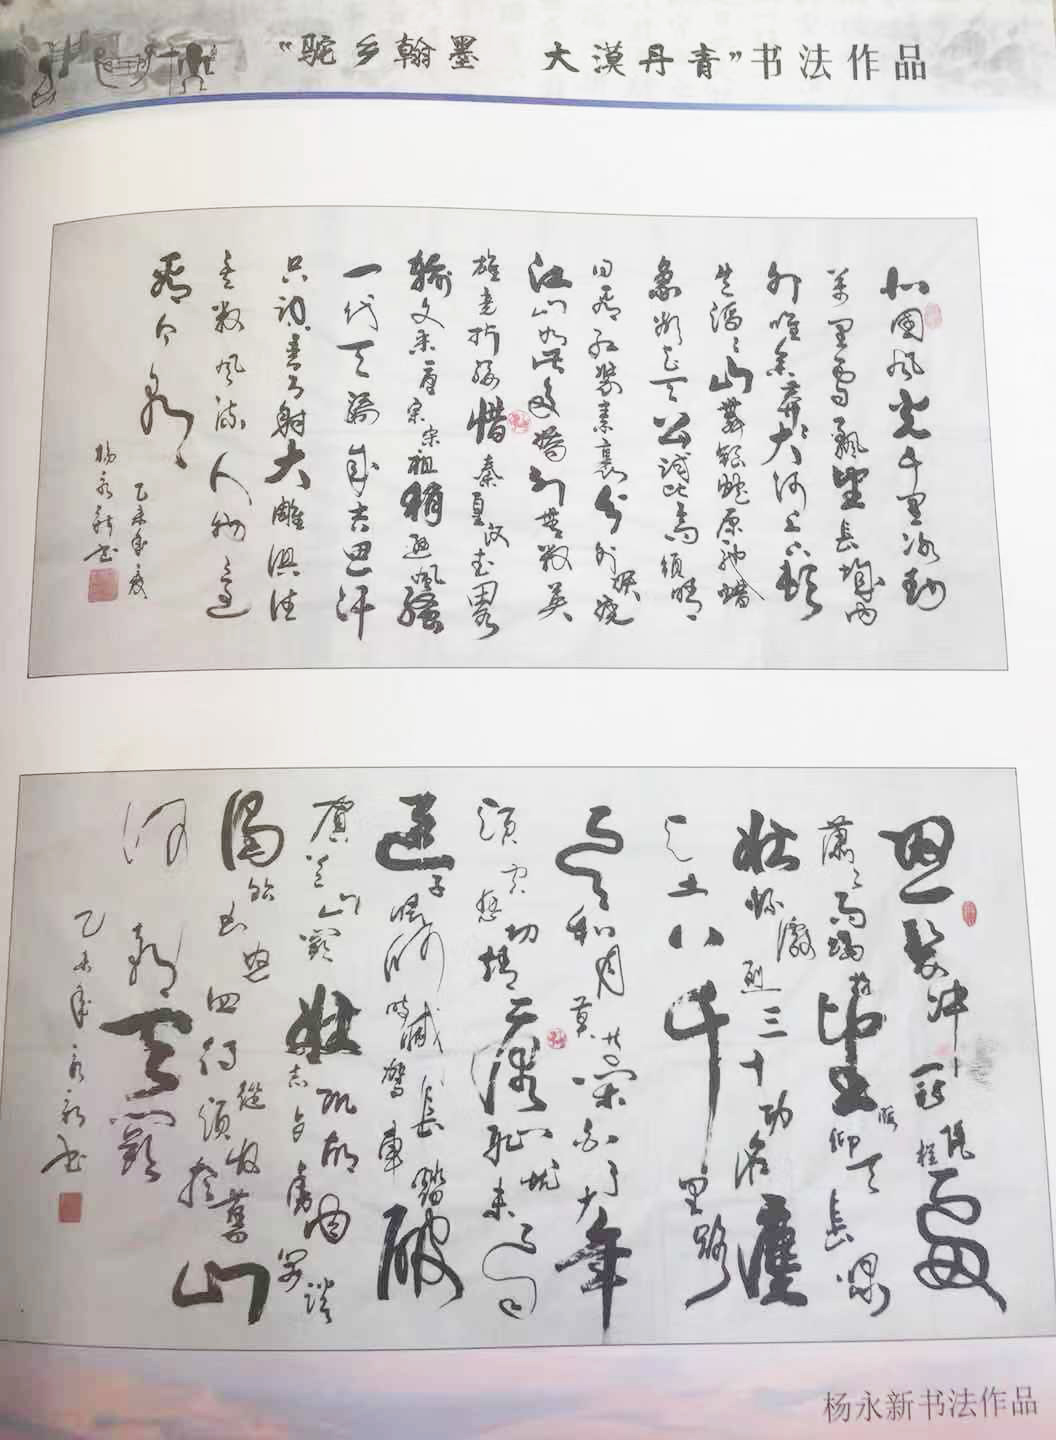 “驼乡翰墨 大漠丹青”书法作品
北国风光千里冰封
万里雪飘望长城内
外惟余莽莽大河上下顿
失滔滔山舞银蛇原驰蜡
象欲与天公试比高须晴
日看红装素裹分外妖娆
江山如此多娇引无数英
雄竞折腰惜秦皇汉武略
输文采唐宗宋祖稍逊风骚
一代天骄成吉思汗
只识弯弓射大雕俱往
矣数风流人物还
看今朝
乙未年夏
杨永新书
怒发冲冠凭栏处
潇潇雨歇抬望眼仰天长啸
壮怀激烈三十功名尘
与土八千里路
云和月莫等闲白了少年
头空悲切靖康耻犹未雪
臣子恨何时灭驾长车踏破
贺兰山阙壮志饥餐胡虏肉笑谈
渴饮匈奴血待从头收拾旧山
河朝天阙
乙未年永新书
杨永新书法作品